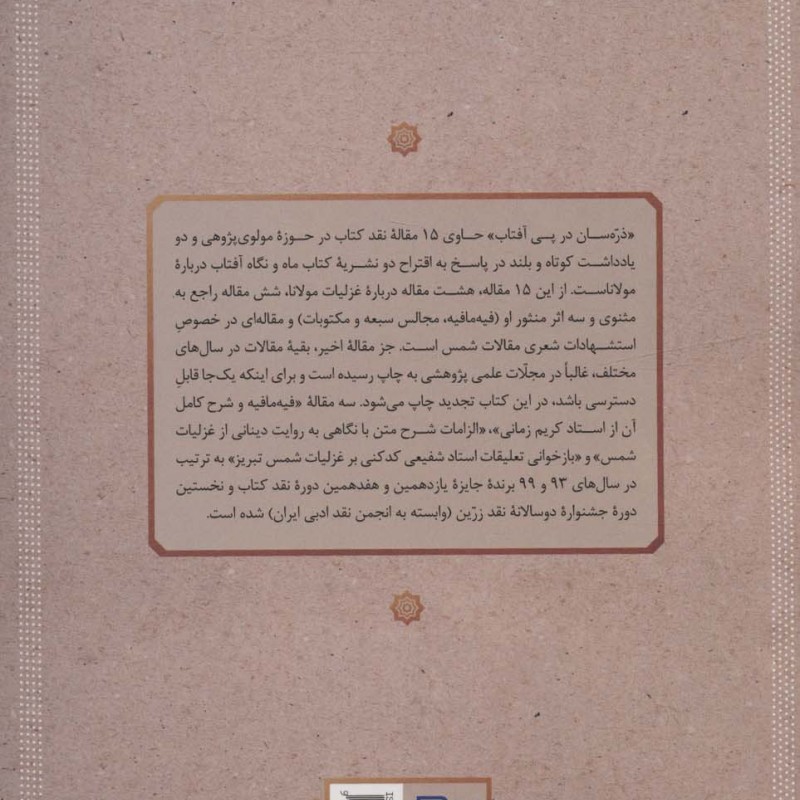 «ذرّه‌سان در پی آفتاب» حاوی ۱۵ مقالهٔ نقد کتاب در حوزهٔ مولوی‌پژوهی و دو
یادداشت کوتاه و بلند در پاسخ به اقتراح دو نشریهٔ کتاب ماه و نگاه آفتاب دربارهٔ
مولاناست. از این ۱۵ مقاله، هشت مقاله دربارهٔ غزلیات مولانا، شش مقاله راجع به
مثنوی و سه اثر منثور او (فیه‌مافیه، مجالس سبعه و مکتوبات) و مقاله‌ای در خصوصِ
استشهادات شعری مقالات شمس است. جز مقالهٔ اخیر، بقیهٔ مقالات در سال‌های
مختلف، غالباً در مجلّات علمی پژوهشی به چاپ رسیده است و برای اینکه یک‌جا قابلِ
دسترسی باشد، در این کتاب تجدید چاپ می‌شود. سه مقالهٔ «فیه‌مافیه و شرح کامل
آن از استاد کریم زمانی»، «الزامات شرح متن با نگاهی به روایت دینانی از غزلیات
شمس» و «بازخوانی تعلیقات استاد شفیعی کدکنی بر غزلیات شمس تبریز» به ترتیب
در سال‌های ۹۳ و ۹۹ برندهٔ جایزهٔ یازدهمین و هفدهمین دورهٔ نقد کتاب و نخستین
دورهٔ جشنوارهٔ دوسالانهٔ نقد زرّین (وابسته به انجمن نقد ادبی ایران) شده است.